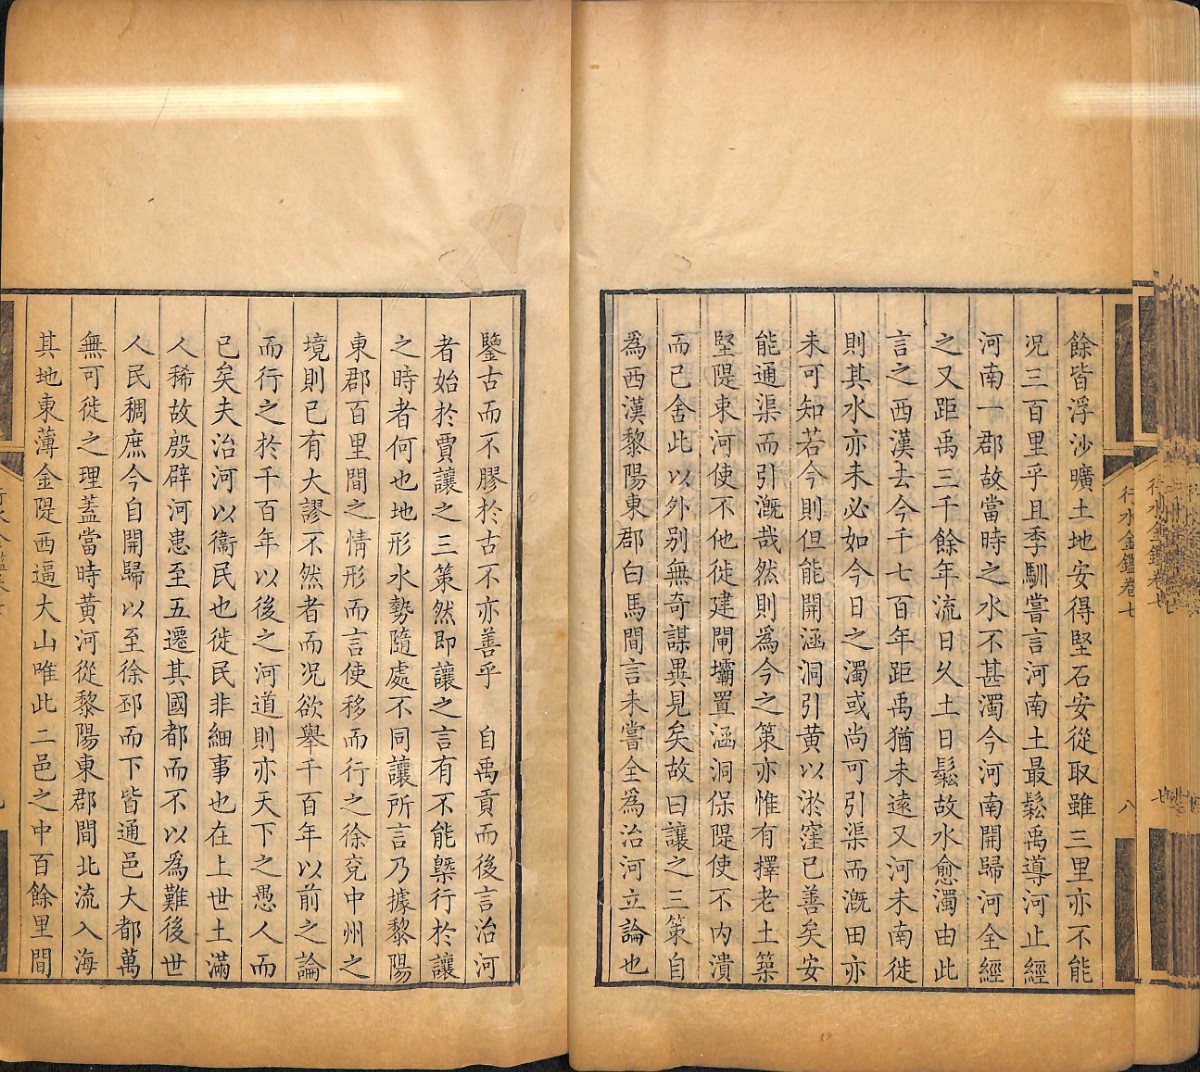 餘皆浮沙曠土地安得堅石安從取雖三里亦不能
况三百里乎且季馴嘗言河南土最鬆禹導河止經
河南一郡故當時之水不甚濁今河南開歸河全經
之又距禹三千餘年流日久土日鬆故水愈濁由此
言之西漢去今千七百年距禹猶未遠又河未南徙
則其水亦未必如今日之濁或尚可引渠而漑田亦
未可知若今則但能開涵洞引黄以淤窪已善矣安
能通渠而引漑哉然則為今之策亦惟有擇老土築
堅隄束河使不他徙建閘壩置涵洞保隄使不内潰
而已舍此以外别無奇謀異見矣故曰讓之三策自
為西漢黎陽東郡白馬間言未嘗全為治河立論也
行水金鑑卷七
八
鑒古而不膠於古不亦善乎　自禹貢而後言治河
者始於賈讓之三策然即讓之言有不能槩行於讓
之時者何也地形水勢隨處不同讓所言乃據黎陽
東郡百里間之情形而言使移而行之徐兗中州之
境則已有大謬不然者而况欲舉千百年以前之論
而行之於千百年以後之河道則亦天下之愚人而
已矣夫治河以衞民也徙民非細事也在上世土滿
人稀故殷辟河患至五遷其國都而不以為難後世
人民稠庶今自開歸以至徐邳而下皆通邑大都萬
無可徙之理蓋當時黄河從黎陽東郡間北流入海
其地東薄金隄西逼大山唯此二邑之中百餘里間